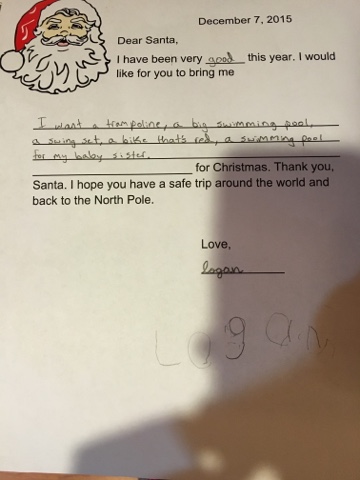 December 7, 2015
Dear Santa,
I have been very good this year. I would
like for you to bring me
I want a trampoline, a big swimming pool,
a swing set, a bike that's red, a swimming pool
for my baby sister.
for Christmas. Thank you,
Santa. I hope you have a safe trip around the world and
back to the North Pole.
Love,
logan
Logan